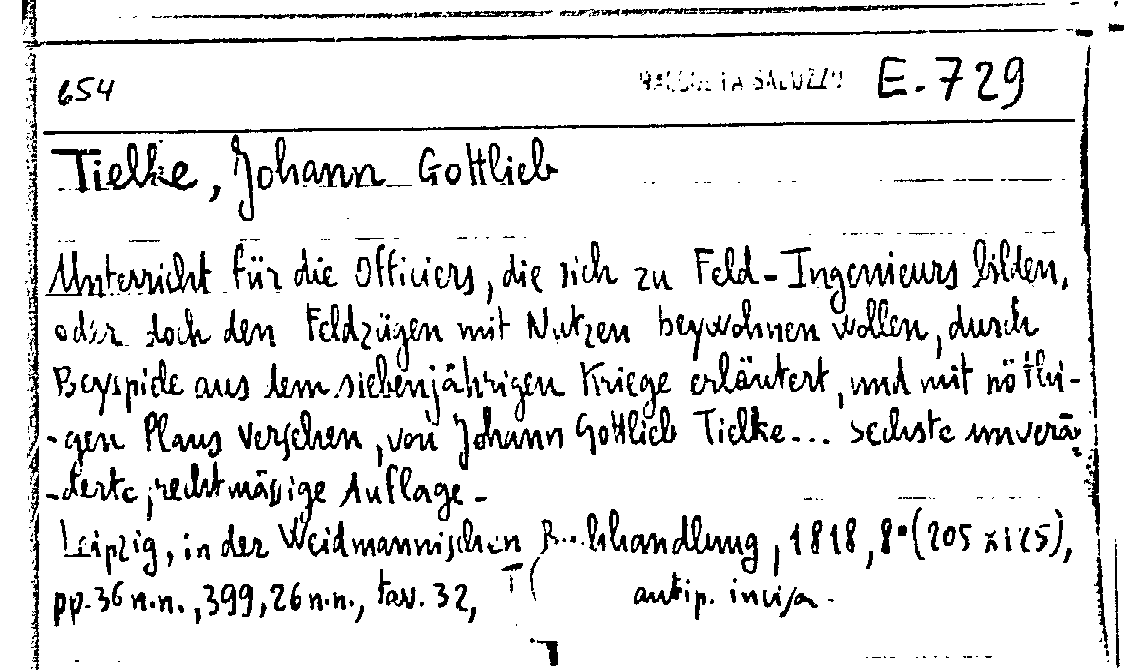 654 RACCOLTA SALUZZO E.729
Tielke, Johann Gottlieb
Unterricht für die Officiers, die sich zu Feld-Ingenieurs bilden,
oder doch den Feldzügen mit Nutzen beywohnen wollen, durch
Beyspiele aus dem siebenjährigen Kriege erläutert, und mit nöthi-
-gen Plans versehen, von Johann Gottlieb Tielke... sechste unverän
-derte, rechtmässige Auflage-
Leipzig, in der Weidmannischen Buchhandlung, 1818, 8°(205x125),
pp. 36 n.n., 399, 26 n.n., tav. 32, antip. incisa.